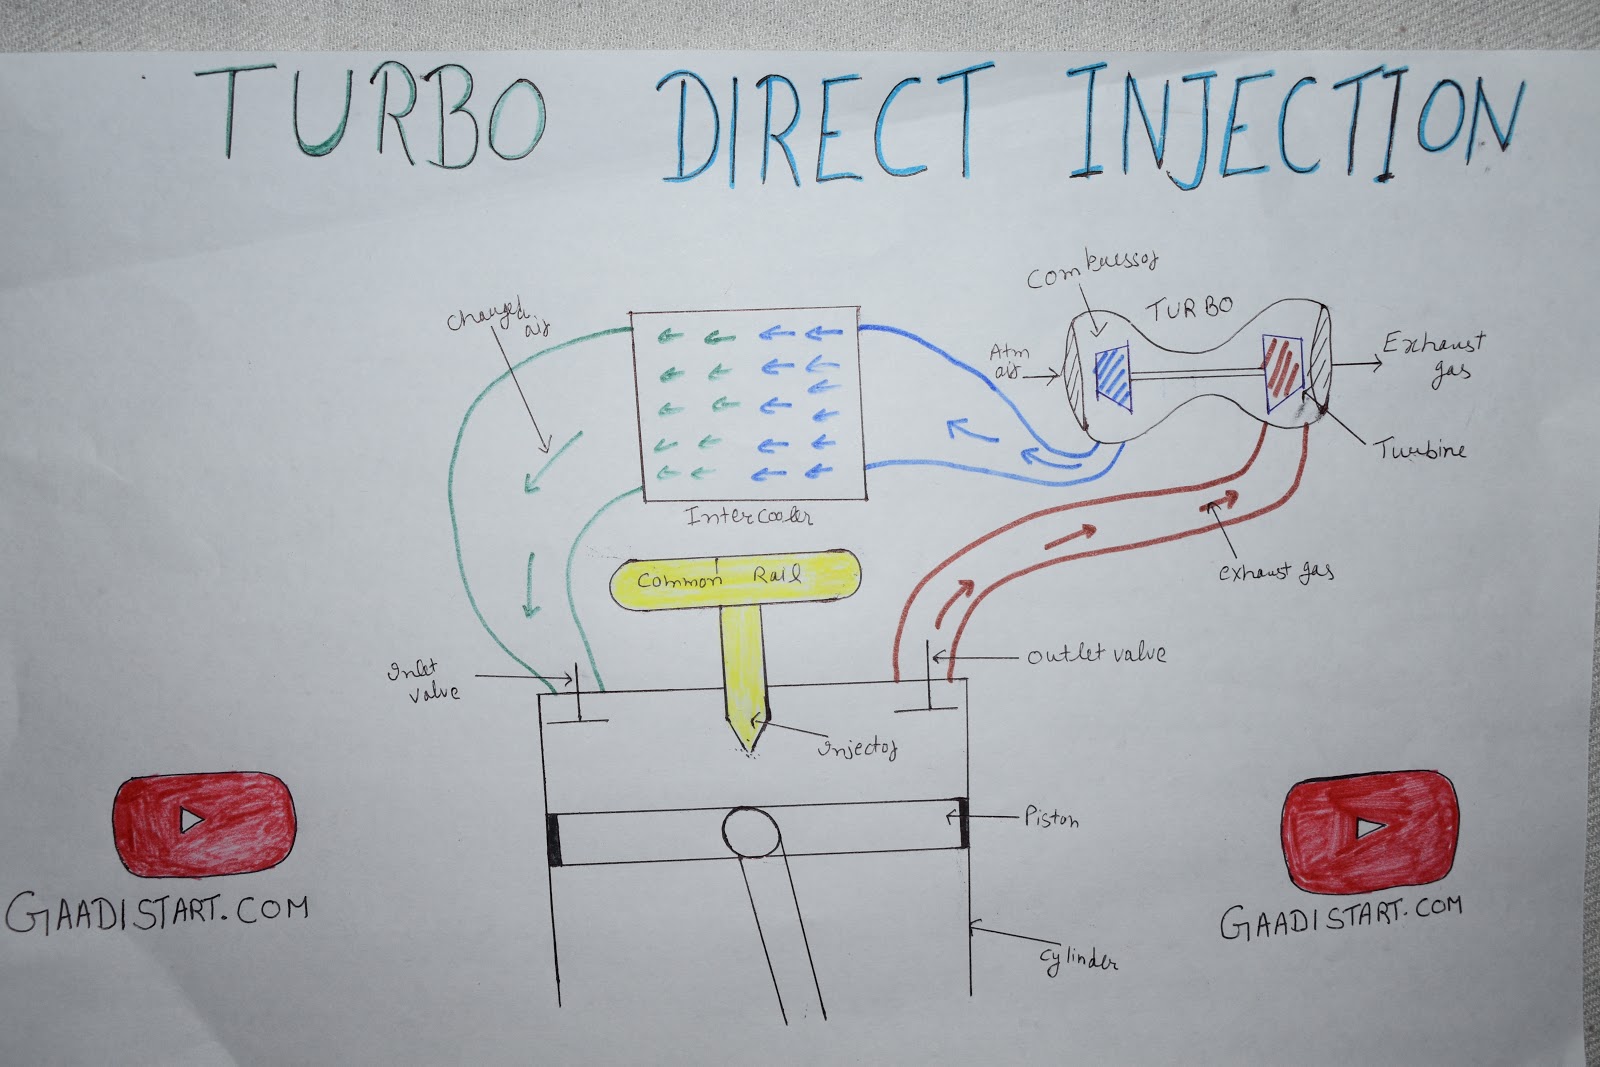 TURBO DIRECT INJECTION
Compressor
TURBO
Charged
air
Atm
air
Exhaust
gas
Turbine
Intercooler
Common Rail
exhaust gas
Inlet
valve
Outlet valve
Injector
Piston
GAADISTART.COM
GAADISTART.COM
Cylinder